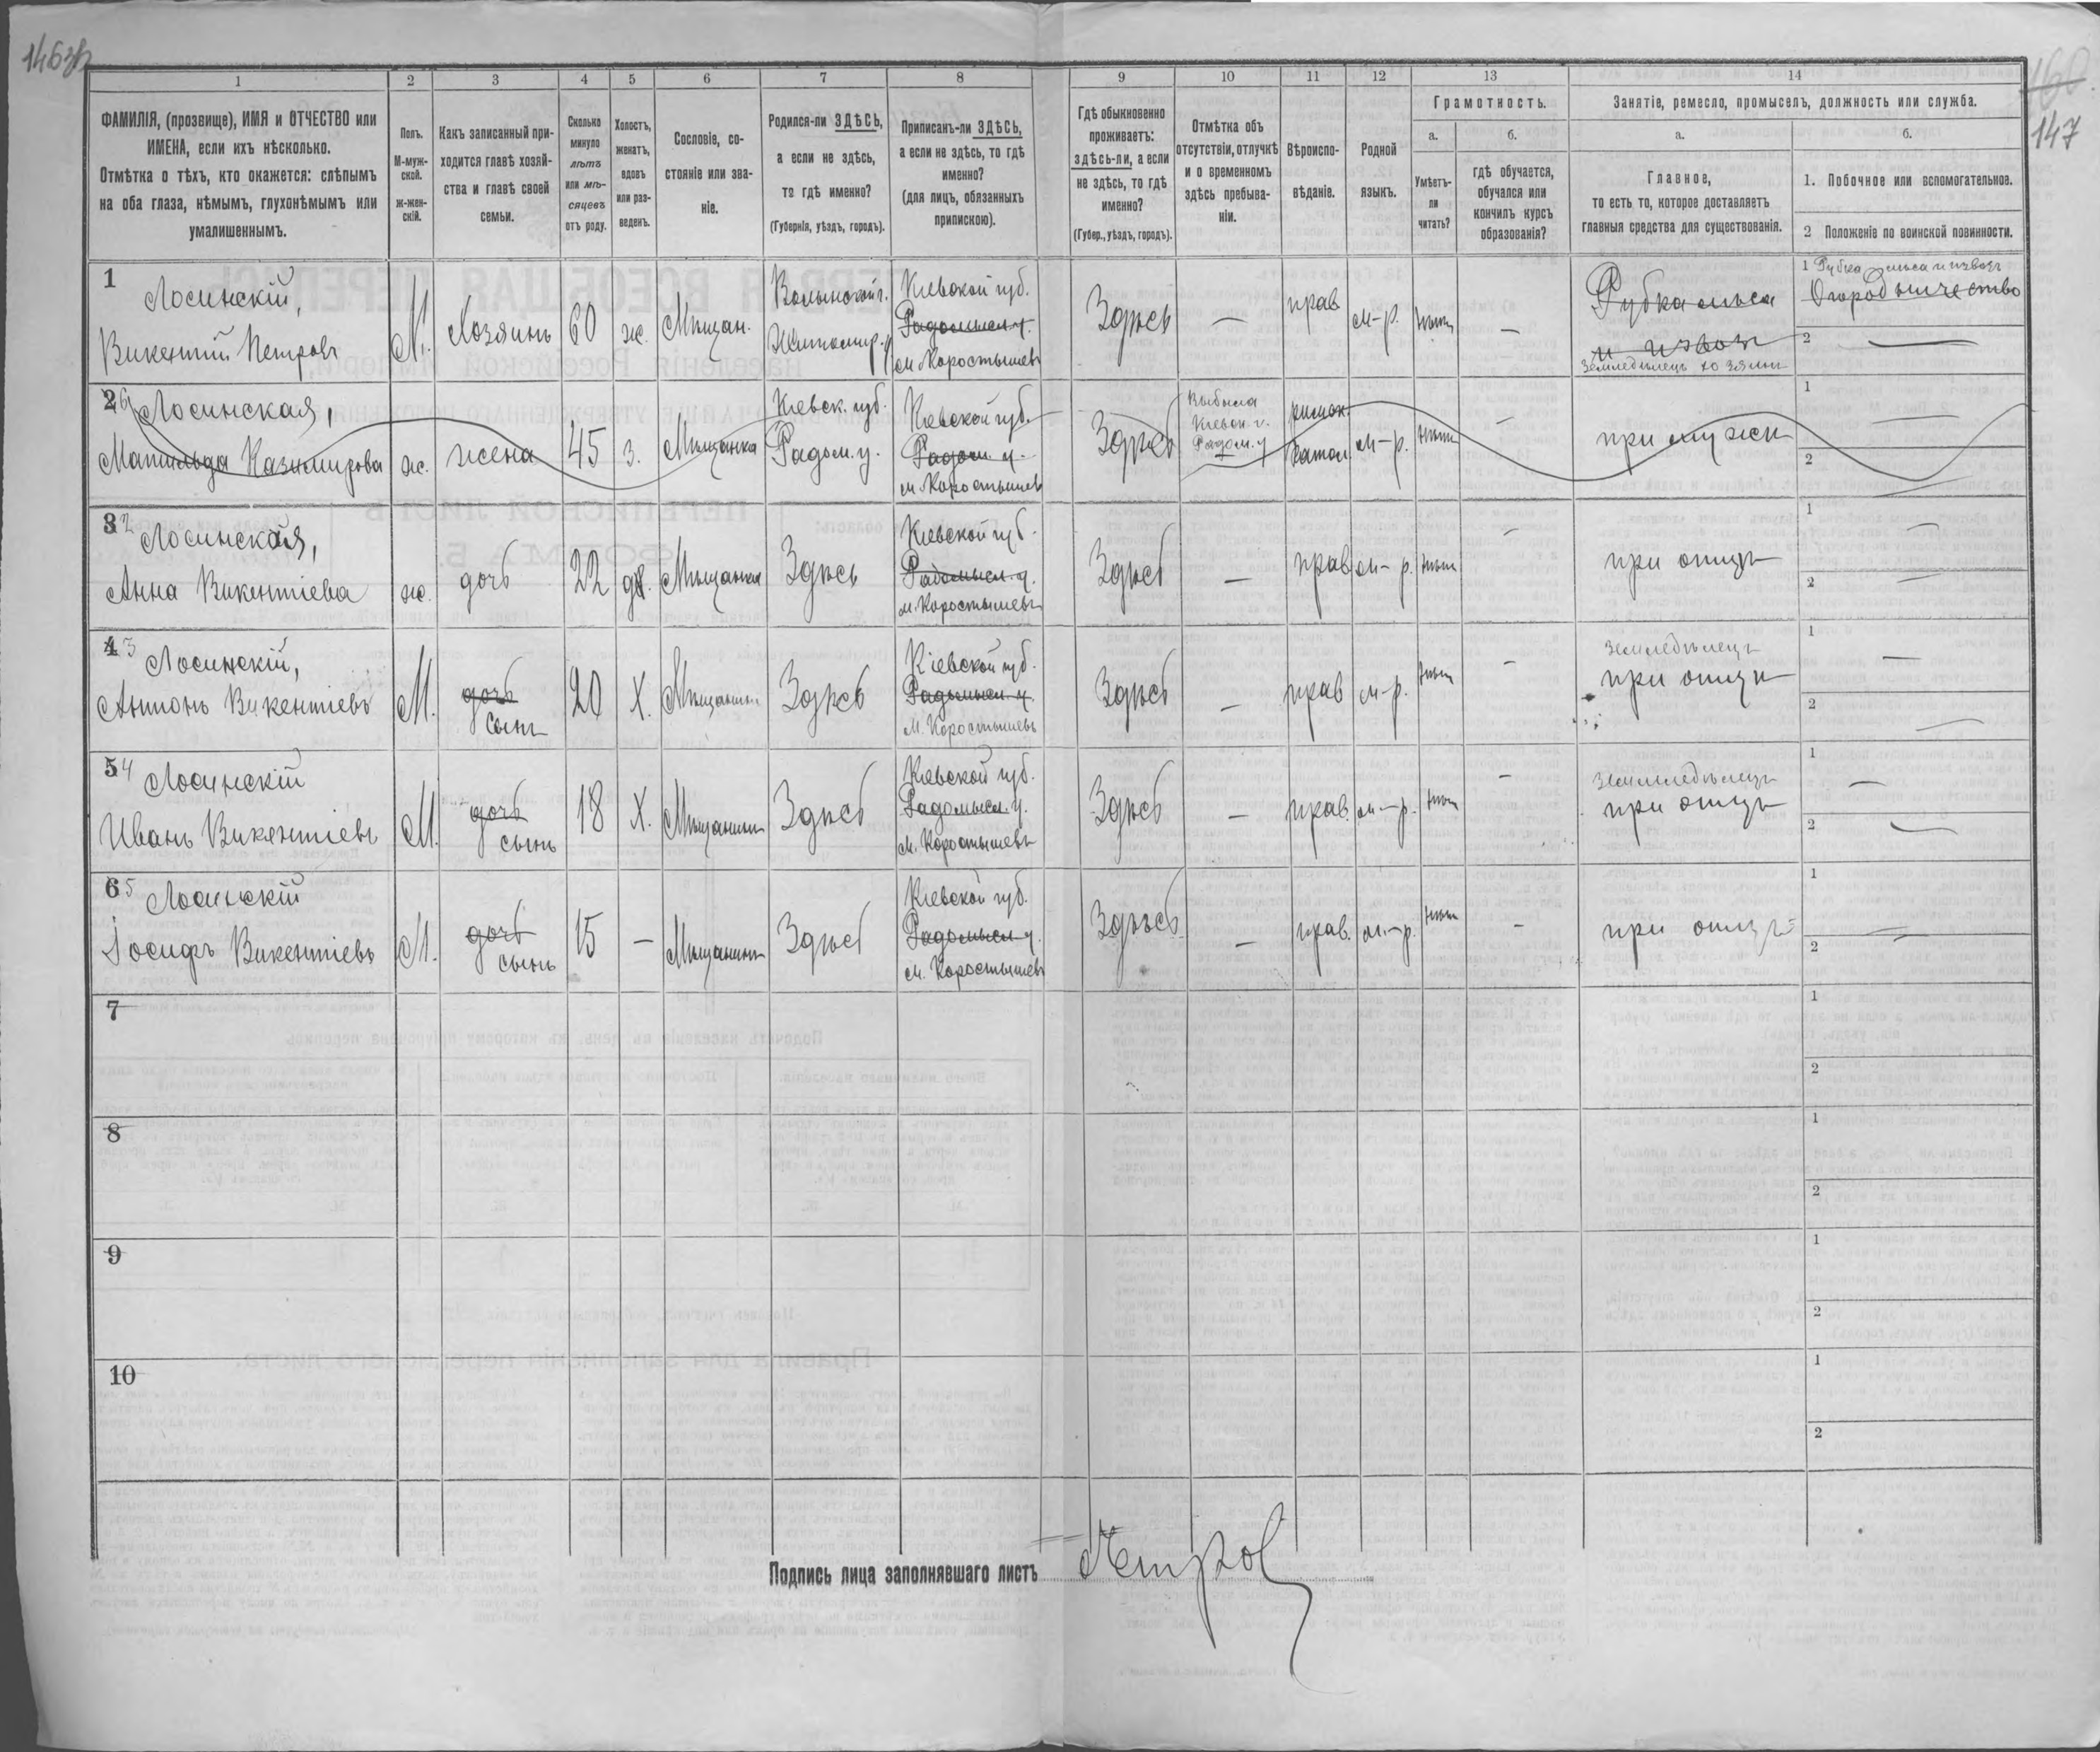 146об
160
147
1
2
3
4
5
6
7
8
9
10
11
12
13
14
ФАМИЛІЯ, (прозвище), ИМЯ и ОТЧЕСТВО или
ИМЕНА, если ихъ нѣсколько.
Отмѣтка о тѣхъ, кто окажется: слѣпымъ
на оба глаза, нѣмымъ, глухонѣмымъ или
умалишеннымъ.
Полъ.
М-муж-
ской.
ж-жен-
скій.
Какъ записанный при-
ходится главѣ хозяй-
ства и главѣ своей
семьи.
Сколько
минуло
лѣтъ
или мѣ-
сяцевъ
отъ роду.
Холостъ,
женатъ,
вдовъ
или раз-
веденъ.
Сословіе, со-
стояніе или зва-
ніе.
Родился-ли ЗДѢСЬ,
а если не здѣсь,
то гдѣ именно?
(Губернія, уѣздъ, городъ).
Приписанъ-ли ЗДѢСЬ,
а если не здѣсь, то гдѣ
именно?
(для лицъ, обязанныхъ
припискою).
Гдѣ обыкновенно
проживаетъ:
здѣсь-ли, а если
не здѣсь, то гдѣ
именно?
(Губер., уѣздъ, городъ).
Отмѣтка объ
отсутствіи, отлучкѣ
и о временномъ
здѣсь пребыва-
ніи.
Вѣроиспо-
вѣданіе.
Родной
языкъ.
Грамотность.
а.
б.
Умѣетъ-
ли
читать?
гдѣ обучается,
обучался или
кончилъ курсъ
образованія?
Занятіе, ремесло, промыселъ, должность или служба.
а.
б.
Главное,
то есть то, которое доставляетъ
главныя средства для существованія.
1. Побочное или вспомогательное.
2 Положеніе по воинской повинности.
1
Лосинскій,
Викентій Петровъ
М.
Хозяинъ
60
ж.
Мѣщан.
Волынской г.
Житомир. у.
Кіевской губ.
Радомысл. у.
м. Коростышевъ
Здѣсь
—
прав
м-р.
—
Рубка лѣса
и извозъ
Земледѣлецъ хозяин
1 Рубка лѣса и извозъ
Огородничество
2 —
2 6
Лосинская,
Матильда Казимирова
ж.
жена
45
з.
Мѣщанка
Кіевск. губ.
Радом. у.
Кіевской губ.
Радом. у.
м. Коростышев
Здѣсь
Выбыла
Кіевск. г.
Радом. у
римок.
катол
м-р.
—
при мужѣ
1 —
2 —
3 2
Лосинская,
Анна Викентіева
ж.
дочь
22
дв.
Мѣщанка
Здѣсь
Кіевской губ.
Радомысл. у.
м. Коростышевъ
Здѣсь
—
прав
м-р.
—
при отцѣ
1 —
2 —
4 3
Лосинскій,
Антонъ Викентіевъ
М.
дочь
сынъ
20
Х.
Мѣщанинъ
Здѣсь
Кіевской губ.
Радомысл. у.
м. Коростышевъ
Здѣсь
—
прав
м-р.
—
земледѣлецъ
при отцѣ
1 —
2 —
5 4
Лосинскій
Иванъ Викентіевъ
М.
дочь
сынъ
18
Х.
Мѣщанинъ
Здѣсь
Кіевской губ.
Радомысл. у.
м. Коростышевъ
Здѣсь
—
прав.
м-р.
—
земледѣлецъ
при отцѣ
1 —
2 —
6 5
Лосинскій
Іосифъ Викентіевъ
М.
дочь
сынъ
15
—
Мѣщанинъ
Здѣсь
Кіевской губ.
Радомысл. у.
м. Коростышевъ
Здѣсь
—
прав.
м-р.
—
при отцѣ
1 —
2 —
7
1
2
8
1
2
9
1
2
10
1
2
Подпись лица заполнявшаго листъ
Петров